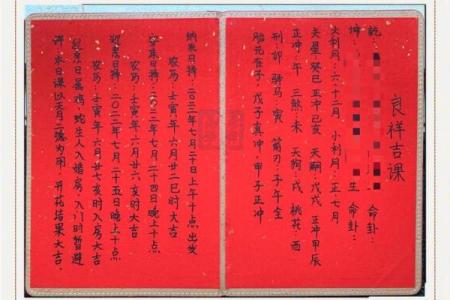 良祥吉课
乾：
坤： 生 命卦：
大利月：六十二月 小利月：正七月
夫星癸巳正冲己亥 天嗣戊戌正冲甲辰
正冲：午 三煞：未 天狗：戌 桃花：酉
刑：卯 驿马：寅 箭刃：子午全
胎元在子，戊子真冲，甲子正冲
纳采日择：二〇二二年七月二十日上午十点出发
农历：壬寅年六月廿二巳时大吉
安床日择：二〇二二年七月二十四日晚上十点
农历：壬寅年六月廿六亥时大吉
迎亲日择：二〇二二年七月二十五日晚上十点
农历：壬寅年六月廿七亥时入房大吉
迎亲日属鸡 蛇生人入婚房 入门时暂避
详本日课以天月二德为用，开花结果大吉．